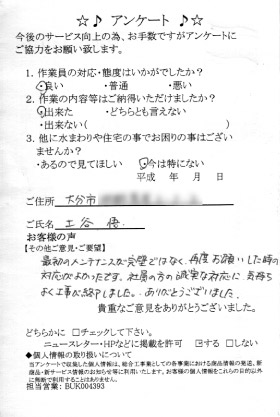 ☆♪ アンケート ♪☆
今後のサービス向上の為、お手数ですがアンケートに
ご協力をお願い致します。
1. 作業員の対応・態度はいかがでしたか?
・良い ・普通 ・悪い
2. 作業の内容等はご納得いただけましたか?
・出来た ・どちらとも言えない
・出来ない( )
3. 他に水まわりや住宅の事でお困りの事はござい
ませんか?
・あるので見てほしい ・今は特にない
平成 年 月 日
ご住所 大分市
ご氏名 工谷 悟
お客様の声
【その他ご意見・ご要望】
最初のメンテナンスが完璧ではなく、再度お願いした時の
対応がよかったです。社員の方の誠実な対応に、気持ち
よく工事が終了しました。ありがとうございました。
貴重なご意見をありがとうございました。
どちらかに □チェックして下さい。
ニュースレター・HPなどに掲載を許可 する □しない
◆個人情報の取り扱いについて
当アンケートで収集した個人情報は、総合工事業としての各事業における商品情報の発送、新
商品・新サービス情報のお知らせ等に利用いたします。お客様の個人情報をこれらの目的以外
に無断で利用することはありません。
担当営業:BUK004393